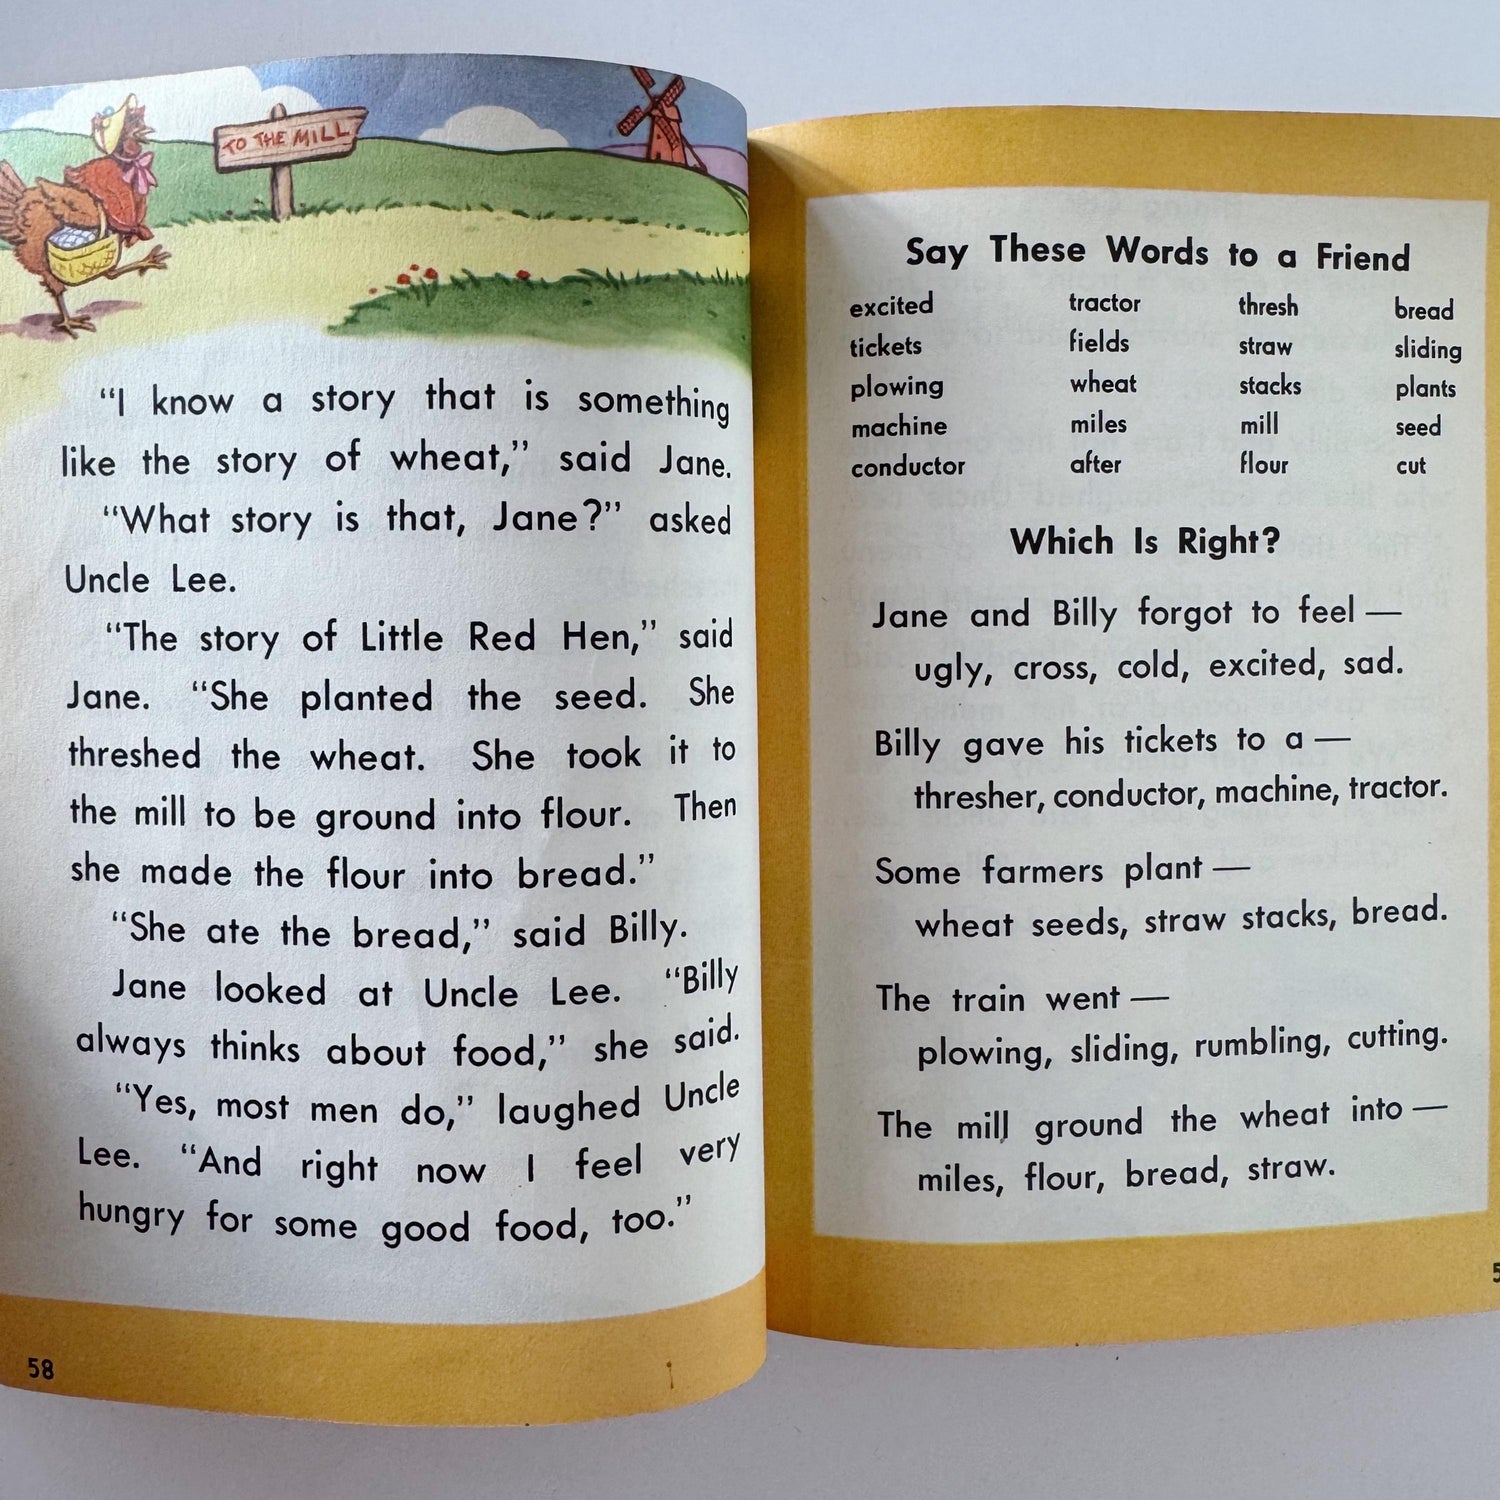 TO THE MILL
“I know a story that is something
like the story of wheat,” said Jane.
“What story is that, Jane?” asked
Uncle Lee.
“The story of Little Red Hen,” said
Jane. “She planted the seed. She
threshed the wheat. She took it to
the mill to be ground into flour. Then
she made the flour into bread.”
“She ate the bread,” said Billy.
Jane looked at Uncle Lee. “Billy
always thinks about food,” she said.
“Yes, most men do,” laughed Uncle
Lee. “And right now I feel very
hungry for some good food, too.”
58
Say These Words to a Friend
excited tractor thresh bread
tickets fields straw sliding
plowing wheat stacks plants
machine miles mill seed
conductor after flour cut
Which Is Right?
Jane and Billy forgot to feel —
ugly, cross, cold, excited, sad.
Billy gave his tickets to a —
thresher, conductor, machine, tractor.
Some farmers plant —
wheat seeds, straw stacks, bread.
The train went —
plowing, sliding, rumbling, cutting.
The mill ground the wheat into —
miles, flour, bread, straw.